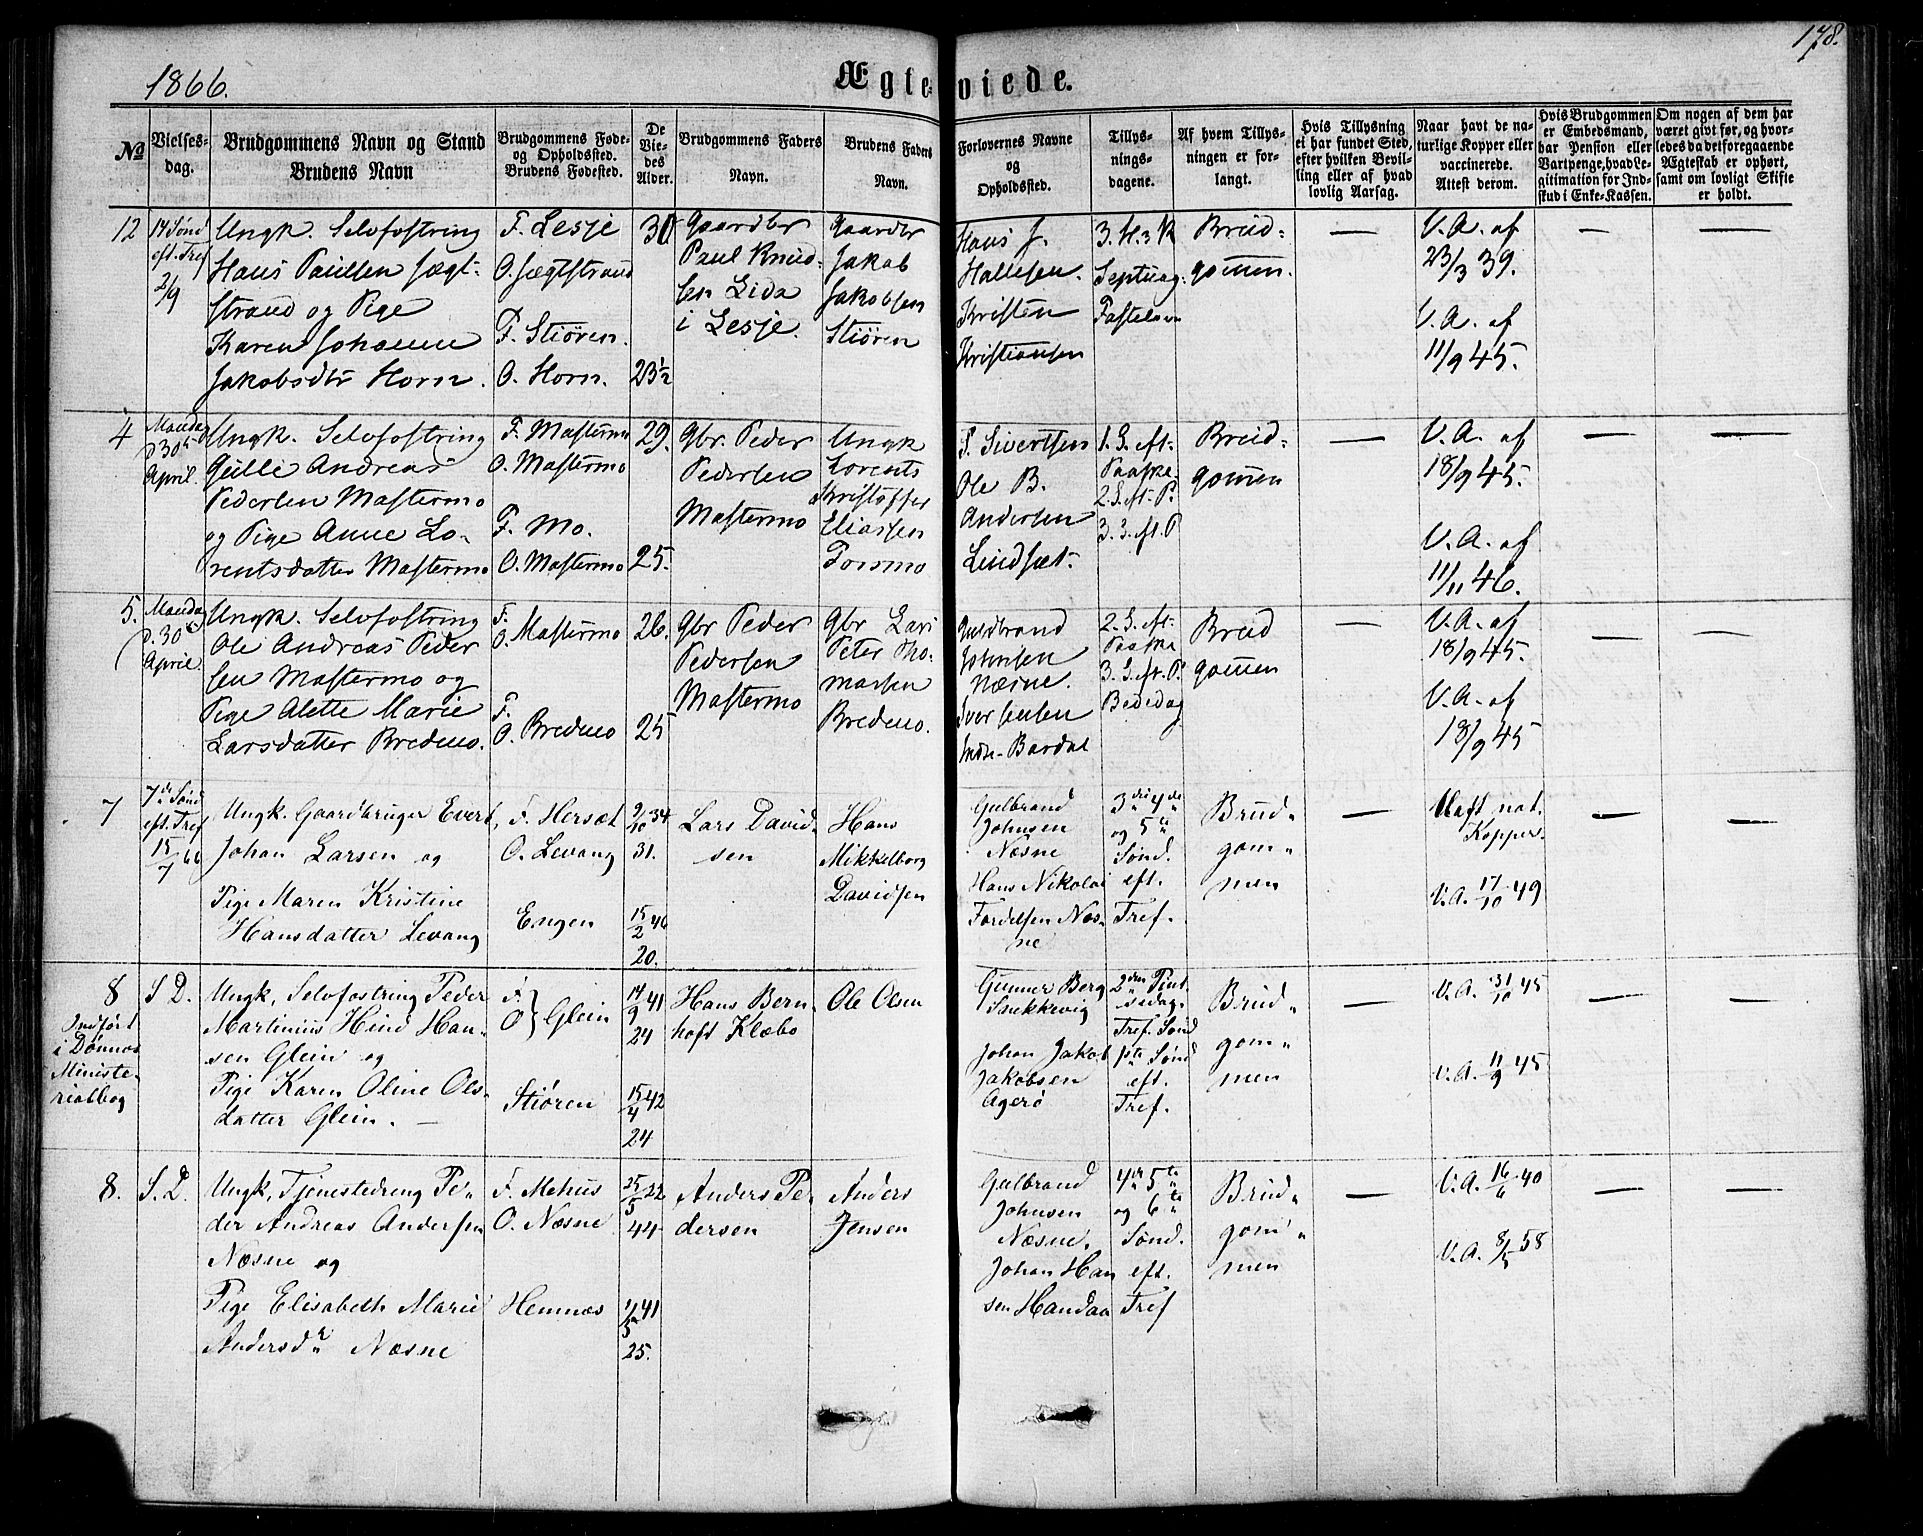 178.
1866.
Ægte-viede.
No
Vielses-
dag.
Brudgommens Navn og Stand
Brudens Navn
Brudgommens Føde-
og Opholdssted.
Brudens Fødested.
De
Vie-
des
Alder.
Brudgommens Faders
Navn.
Brudens Faders
Navn.
Forlovernes Navne
og
Opholdssted.
Tillys-
nings-
dagene.
Af hvem Tillys-
ningen er for-
langt.
Hvis Tillysning
ei har fundet Sted,
efter hvilken Bevil-
ling eller af hvad
lovlig Aarsag.
Naar havt de na-
turlige Kopper eller
vaccinerede.
Attest derom.
Hvis Brudgommen
er Embedsmand,
har Pension eller
Vartpenge, hvad Le-
gitimation for Ind-
skud i Enke-Kassen.
Om nogen af dem har
været givt før, og hvor-
ledes da det foregaaende
Ægteskab er ophørt,
samt om lovligt Skifte
er holdt.
12
14 Sønd
eft. Tref
2/9
Ungk. Selvfostring
Hans Paulsen Sægt-
strand og Pige
Karen Johanne
Jakobsdtr Horn.
F. Lesje
O. Sægtstrand
F. Stiøren.
O. Horn.
30
23½
Gaardbr
Paul Knud-
sen Lida
i Lesje.
Gaardbr
Jakob
Jakobsen
Stiøren
Hans J.
Hallesen.
Kristen
Kristiansen
3. H. 3 K
Septuag.
Fastelavn
Brud-
gommen.
—
V. A. af
23/3 39.
V. A. af
11/9 45.
—
—
4
Mandag
d 30te
April.
Ungk. Selvfostring
Gulli Andreas
Pedersen Mastermo
og Pige Anne Lo-
rentsdatter Mastermo
F. Mastermo
O. Mastermo
F. Mo.
O. Mastermo
29.
25.
Gbr. Peder
Pedersen
Mastermo
Ungk
Lorents
Kristoffer
Eliassen
Forsmo
P. Sivertsen
Ole B.
Andersen
Lindsæt.
1. S. eft.
Paaske
2. S. eft. P.
3. S. eft. P
Brud-
gommen
—
V. A. af
18/9 45.
V. A. af
11/11 46.
—
—
5.
Mandag
d. 30te
April.
Ungk. Selvfostring
Ole Andreas Peder
sen Mastermo og
Pige Alette Marie
Larsdatter Bredmo.
F.
O. Mastermo
F.
O. Bredmo
26.
25
Gbr Peder
Pedersen
Mastermo
Gbr Lars
Peter Tho-
massen
Bredmo.
Guldbrand
Johnsen
Næsne.
Iver Jensen
Indre-Bardal
2. S. eft.
Paaske
3. S. eft. P.
Bededag
Brud
gommen
—
V. A. af
18/9 45.
V. A. af
18/9 45
—
—
7
7de Sønd
eft. Tref
15/7 66
Ungk. Gaardbruger Evert
Johan Larsen og
Pige Maren Kristine
Hansdatter Levang
F. Hersæt
O. Levang
Engen
9/10 34
31.
15/2 46
20.
Lars David-
sen
Hans
Mikkelborg
Davidsen
Gulbrand
Johnsen
Næsne
Hans Nikolai
Fordelsen Næs-
ne
3die 4de
og 5te
Sønd.
eft.
Tref.
Brud-
gom-
men
—
Haft nat.
Kopper.
V. A. 17/10 49
—
—
8
Indført
i Dønnes
Ministe-
rialbog
S. D.
Ungk, Selvfostring Peder
Martinius Hind Han-
sen Glein og
Pige Karen Oline Ols-
datter Glein. —
F.
O } Glein
Stiøren
14/9 41
24
15/4 42
24
Hans Bern
hoft Klæbo
Ole Olsen
Gunner Berg
Snekkevig
Johan Jakob
Jakobsen
Agerø
2den Pint
sedag.
Tref. Sønd
1ste Sønd
eft.
Tref.
Brud-
gom-
men
—
V. A. 31/10 45
V. A. 11/9 45
—
—
8.
S. D.
Ungk, Tjenestedreng Pe-
der Andreas Andersen
Næsne og
Pige Elisabeth Marie
Andersdtr Næsne
F. Mehus
O. Næsne
Hemnæs
25/5 22
44
1/5 41
25.
Anders Pe-
dersen
Anders
Jensen
Gulbrand
Johnsen
Næsne.
Johan Han
sen Handaa
4de 5te
og 6te
Sønd.
eft.
Tref
Brud-
gom-
men
—
V. A. 16/6 40
V. A. 8/5 58
—
—